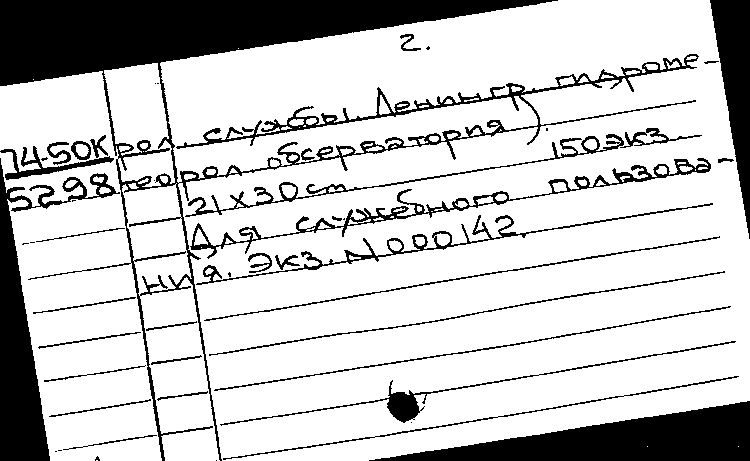 2.
74-50К рол. службы. Ленингр. гидроме-
5298 теорол. обсерватория)
21 х 30 cm. 150 экз.
Для служебного пользова-
ния. Экз. N 000142.